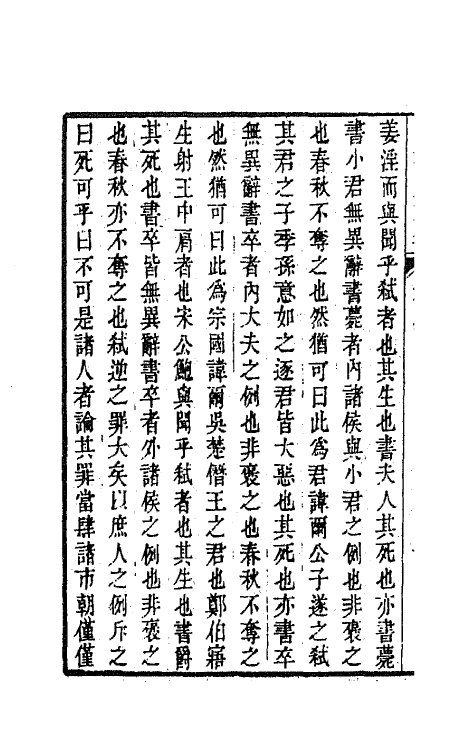 姜淫而與聞乎弑者也其生也書夫人其死也亦書薨
書小君無異辭書薨者內諸侯與小君之例也非褒之
也春秋不奪之也然猶可曰此為君諱爾公子遂之弑
其君之子季孫意如之逐君皆大惡也其死也亦書卒
無異辭書卒者內大夫之例也非褒之也春秋不奪之
也然猶可曰此為宗國諱爾吳楚僭王之君也鄭伯寤
生射王中肩者也宋公鮑與聞乎弑者也其生也書爵
其死也書卒皆無異辭書卒者外諸侯之例也非褒之
也春秋亦不奪之也弑逆之罪大矣以庶人之例斥之
曰死可乎曰不可是諸人者論其罪當肆諸市朝僅僅